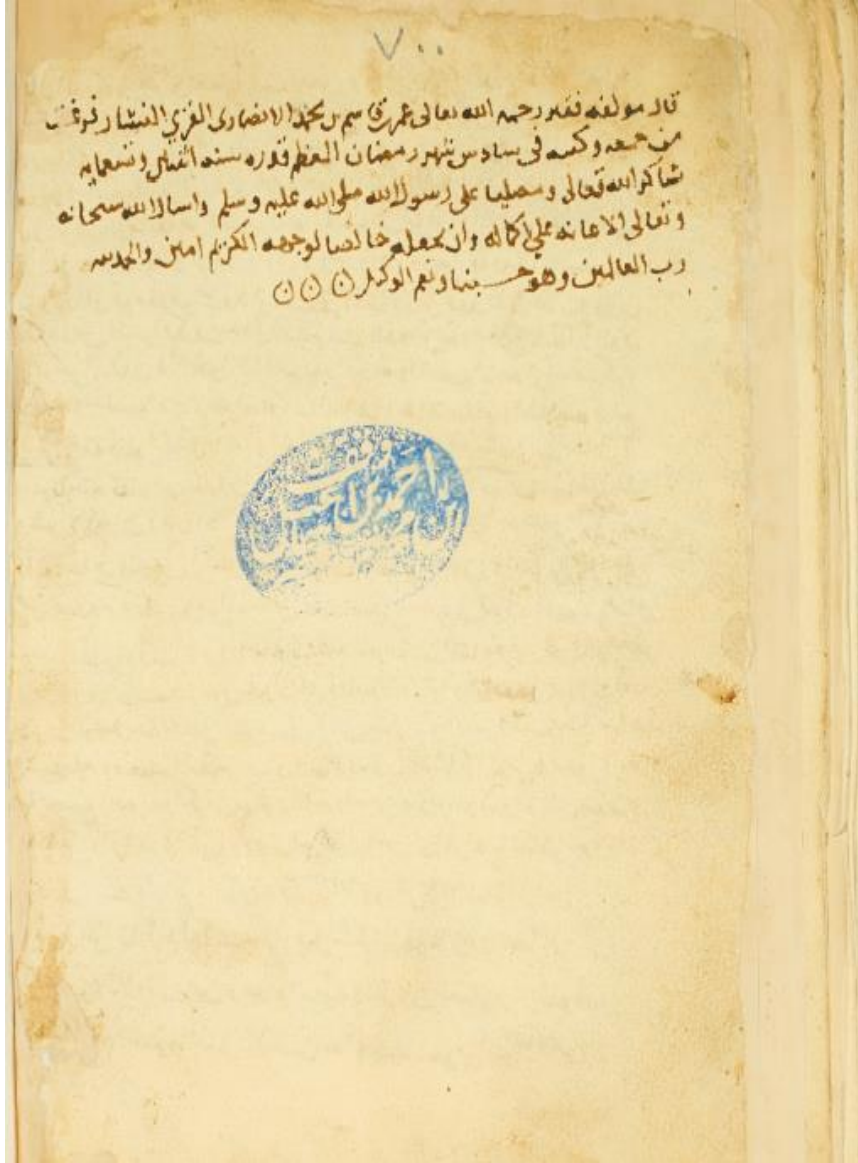 ٧٠٠
قال مولفه فقير رحمه الله تعالى عمر بن قاسم بن محمد الانصارى المقرى النشار فرغت
من جمعه وكتبه فى سادس شهر رمضان المعظم قدره سنه اثنين وتسعمايه
شاكرا لله تعالى ومصليا على رسول الله صلى الله عليه وسلم واسال الله سبحانه
وتعالى الاعانه على اكماله وان يجعله خالصا لوجهه الكريم امين والحمد لله
رب العالمين وهو حسبنا ونعم الوكيل